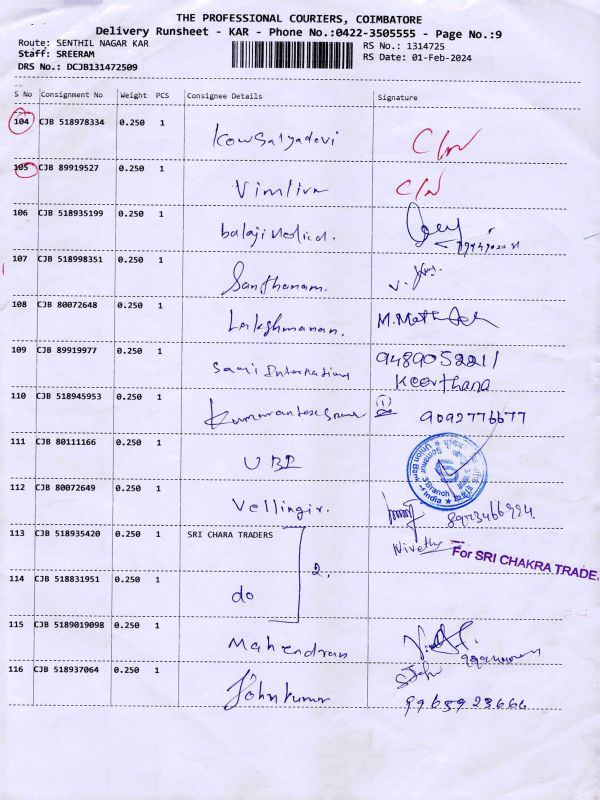 THE PROFESSIONAL COURIERS, COIMBATORE
Delivery Runsheet - KAR - Phone No.:0422-3505555 - Page No.:9
Route: SENTHIL NAGAR KAR
Staff: SREERAM
DRS No.: DCJB131472509
RS No.: 1314725
RS Date: 01-Feb-2024
S No Consignment No Weight PCS Consignee Details Signature
104 CJB 518978334 0.250 1 Kowsalyadevi
105 CJB 89919527 0.250 1
106 CJB 518935199 0.250 1 balaji Medical.
107 CJB 518998351 0.250 1 Santhanam.
108 CJB 80072648 0.250 1 Lakshmanan.
109 CJB 89919977 0.250 1 Saai International 9489052221/
Keerthana
110 CJB 518945953 0.250 1 9092776677
111 CJB 80111166 0.250 1 UBI
Union Bank of India
Somanur Branch
112 CJB 80072649 0.250 1 Vellingir.
113 CJB 518935420 0.250 1 SRI CHARA TRADERS Nivetha
For SRI CHAKRA TRADE
2.
114 CJB 518831951 0.250 1 do
115 CJB 5189019098 0.250 1 Mahendran
116 CJB 518937064 0.250 1 Johnkumar
9965923664